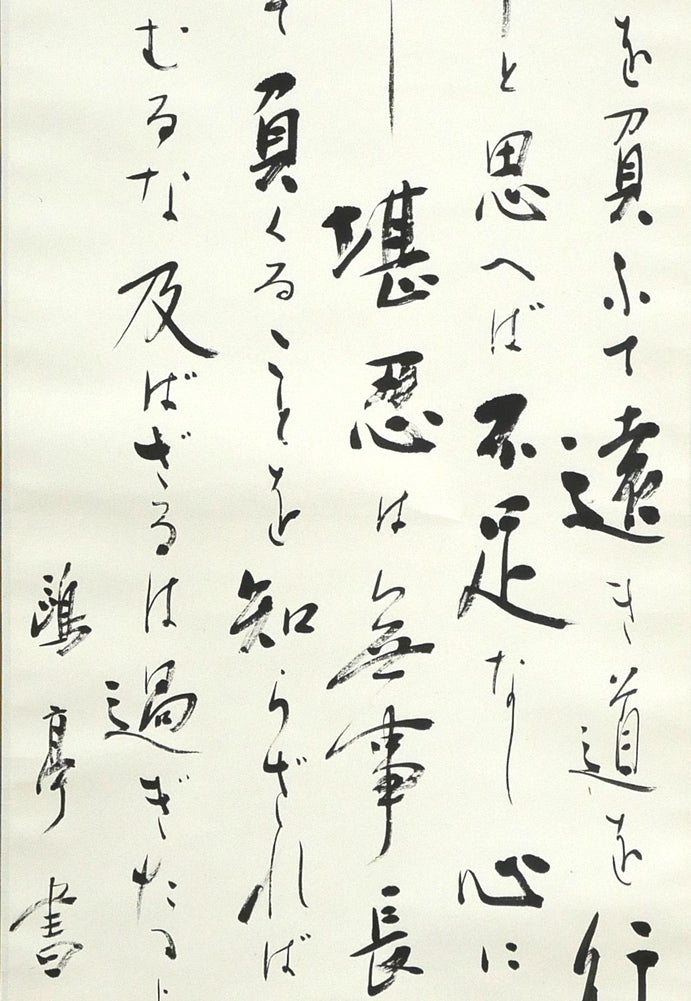 を負ふて遠き道を行
と思へば不足なし心に
堪忍は無事長
て負くることを知らざれば
むるな及ばざるは過ぎたる
亭書